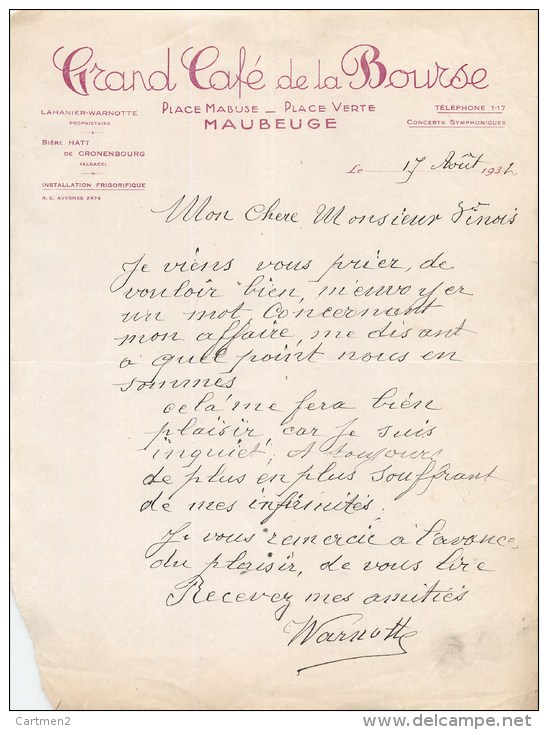 Grand Café de la Bourse
LAHANIER-WARNOTTE
PROPRIETAIRE
BIÈRE HATT
DE CRONENBOURG
(ALSACE)
INSTALLATION FRIGORIFIQUE
R. C. AVESNES 2474
PLACE MABUSE _ PLACE VERTE
MAUBEUGE
TÉLÉPHONE 1-17
CONCERTS SYMPHONIQUES
Le 17 Août 1932
Mon Chere Monsieur Vinois
Je viens vous prier, de
vouloir bien, m'envoyer
un mot, concernant
mon affaire, me disant
a quel point nous en
sommes
celà me fera bien
plaisir, car je suis
inquiet, A toujours
de plus en plus souffrant
de mes infirmités.
Je vous remercie à l'avance,
du plaisir, de vous lire
Recevez mes amitiés
Warnotte
Cartmen2
www.delcampe.net